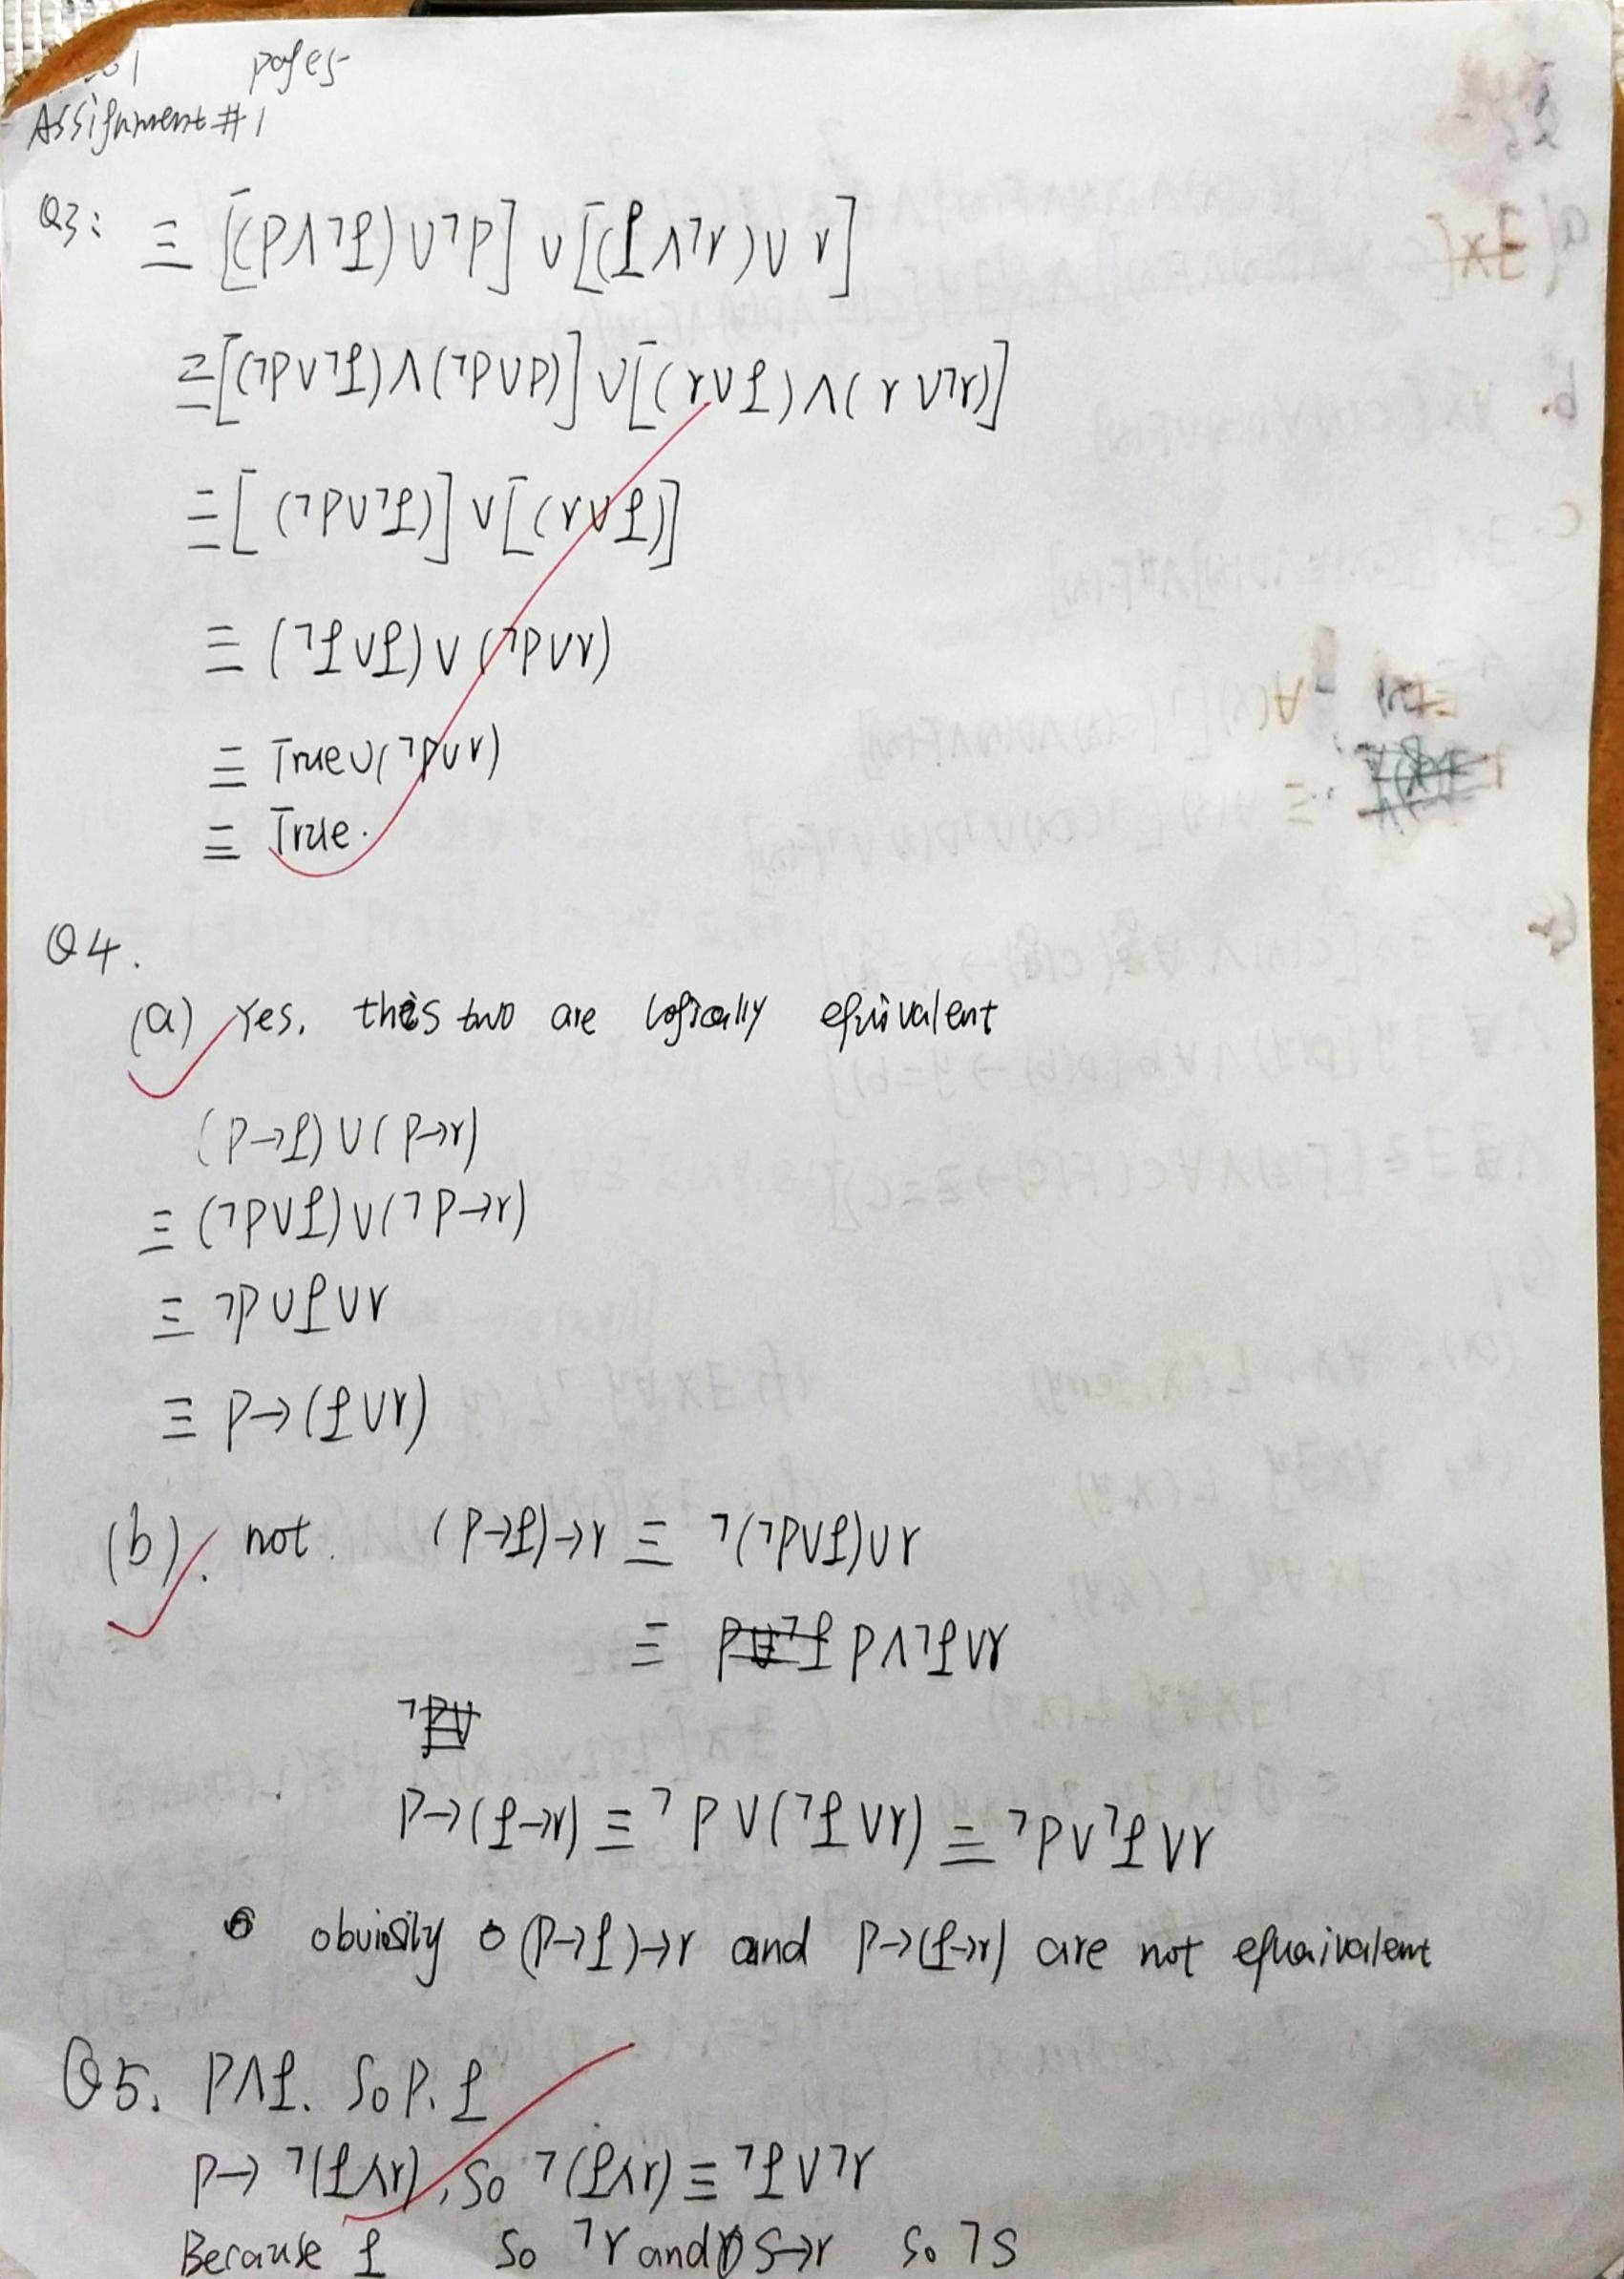 01 pages
Assignment #1
Q3: ≡ [(p∧¬q)∪¬p] ∪ [(q∧¬r)∪ r]
≡ [(¬p∨¬q)∧(¬p∪p)] ∪ [(r∪q)∧(r∪¬r)]
≡ [(¬p∪¬q)] ∨ [(r∨q)]
≡ (¬q∪q)∨(¬p∪r)
≡ True∪(¬p∪r)
≡ True.
Q4.
(a) Yes, this two are logically equivalent
(p→q)∪(p→r)
≡ (¬p∪q)∪(¬p→r)
≡ ¬p∪q∪r
≡ p→(q∪r)
(b). not. (p→q)→r ≡ ¬(¬p∪q)∪r
≡ p∧¬q∨r
p→(q→r) ≡ ¬p∨(¬q∨r) ≡ ¬p∨¬q∨r
obviosily (p→q)→r and p→(q→r) are not equaivalent
Q5. p∧q. So p. q
p→ ¬(q∧r), So ¬(q∧r) ≡ ¬q∨¬r
Because q So ¬r and S→r So ¬S